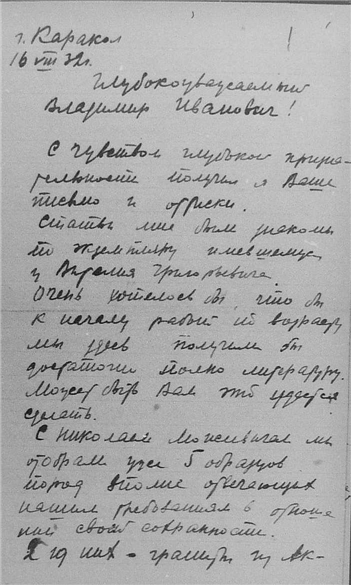 г. Каракол
16 VIII 32г.
Глубокоуважаемый
Владимир Иванович!
С чувством глубокой призна-
тельности получил я Ваше
письмо и оттиски.
Статьи мне были знакомы
по экземпляру имевшемуся
у Виталия Григорьевича.
Очень хотелось бы, что бы
к началу работ по возрасту
мы здесь получили бы
достаточно полно литературу.
Может быть Вам это удастся
сделать.
С Николаем мы
отобрали уже 5 образцов
пород вполне отвечающих
нашим требованиям в отноше
нии своей сохранности.
2 из них – граниты из Ак-